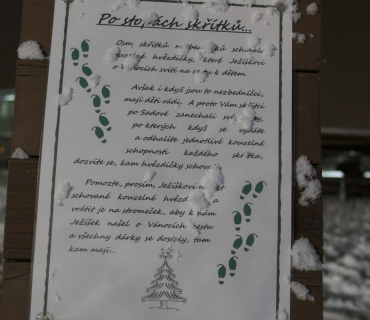 Po sto ách skřítků...
Osm skřítků n schovali
hvězdičky, které Ježíškovi
o Vánocích svítí na cestu k dětem
Avšak i když jsou to nezbedníci,
mají děti rádi. A proto Vám skřítci
po Sadové zanechali své
po kterých když se vydáte
a odhalíte jednotlivé kouzelné
schopnosti každého skřítka,
dozvíte se, kam hvězdičky schovali
Pomozte, prosím, Ježíškovi
schované kouzelné
vrátit je na stromeček, aby k nám
Ježíšek našel o Vánocích cestu
a všechny dárky se dostaly, tam
kam mají...